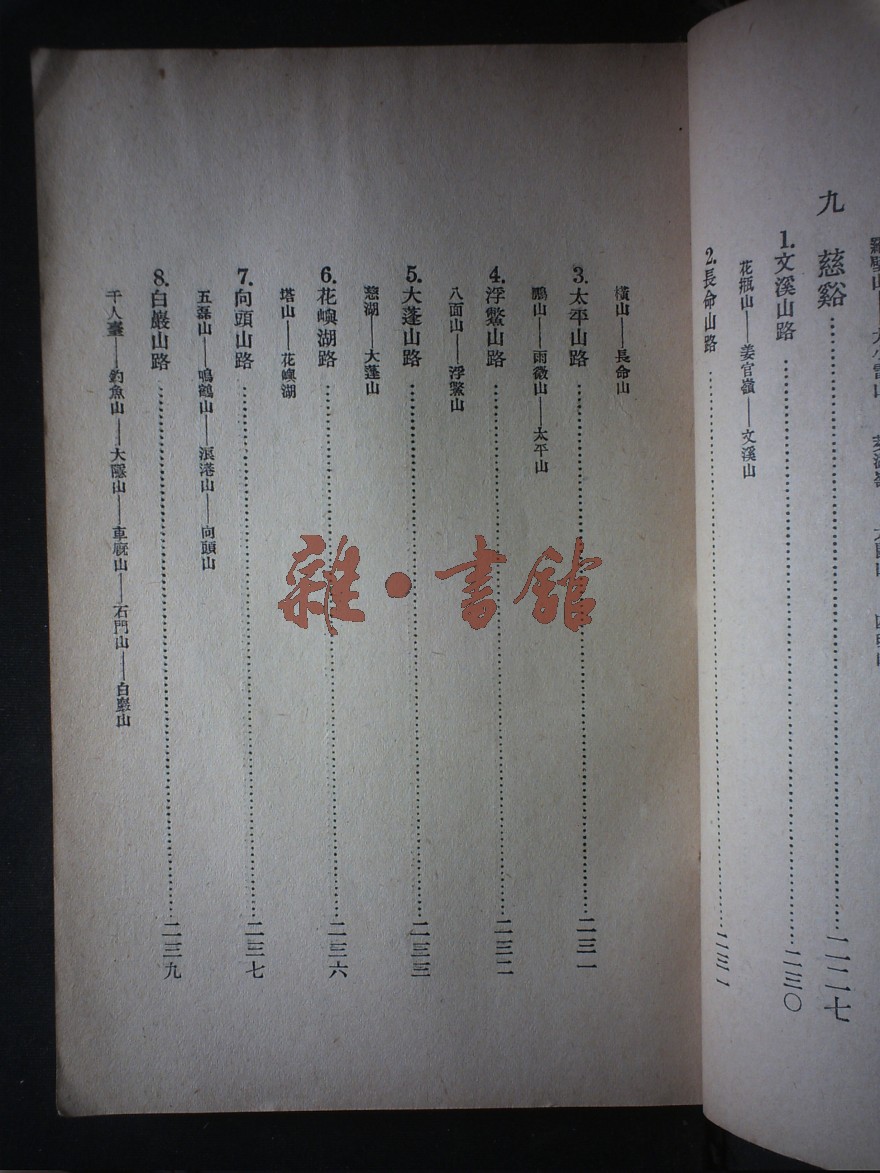 九 慈谿……二二七
1.文溪山路……二三〇
花瓶山——姜官嶺——文溪山
2.長命山路……二三一
橫山——長命山
3.太平山路……二三一
鵬山——雨微山——太平山
4.浮鱉山路……二三二
八面山——浮鱉山
5.大蓬山路……二三三
慈湖——大蓬山
6.花嶼湖路……二三六
塔山——花嶼湖
7.向頭山路……二三七
五磊山——鳴鶴山——浪港山——向頭山
8.白巖山路……二三九
千人臺——釣魚山——大隱山——車廐山——石門山——白巖山
雜·書館